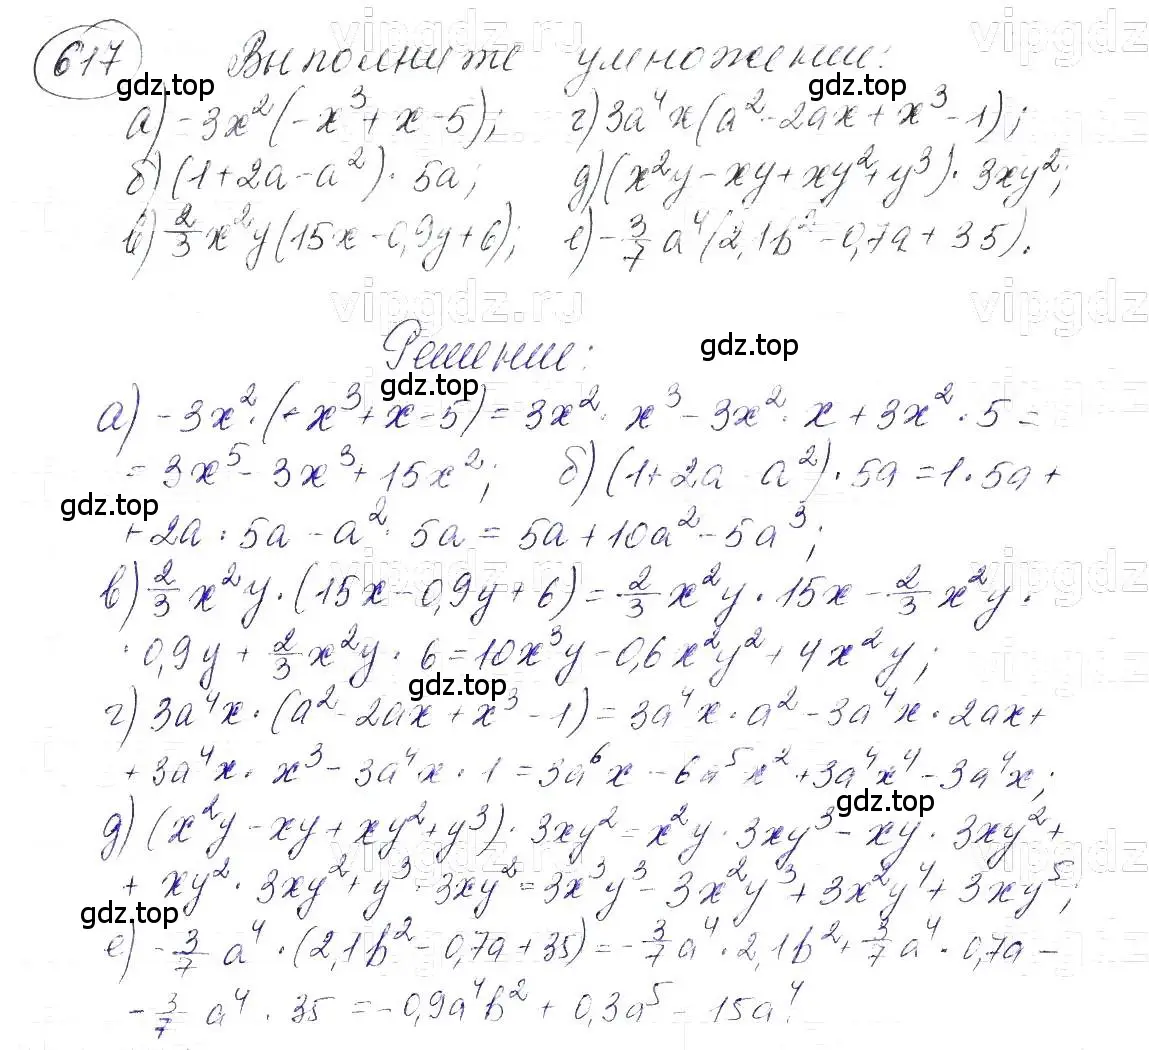 617 Выполните умножение:
а) -3x²(-x³+x-5); г) 3a⁴x(a²-2ax+x³-1);
б) (1+2a-a²)·5a; д) (x²y-xy+xy²+y³)·3xy²;
в) 2/3 x²y(15x-0,9y+6); е) -3/7 a⁴(2,1b²-0,7a+35).
Решение:
а) -3x²·(-x³+x-5)=3x²·x³-3x²·x+3x²·5=
=3x⁵-3x³+15x²; б) (1+2a-a²)·5a=1·5a+
+2a·5a-a²·5a=5a+10a²-5a³;
в) 2/3 x²y·(15x-0,9y+6)=2/3 x²y·15x-2/3 x²y·
·0,9y+2/3 x²y·6=10x³y-0,6x²y²+4x²y;
г) 3a⁴x·(a²-2ax+x³-1)=3a⁴x·a²-3a⁴x·2ax+
+3a⁴x·x³-3a⁴x·1=3a⁶x-6a⁵x²+3a⁴x⁴-3a⁴x;
д) (x²y-xy+xy²+y³)·3xy²=x²y·3xy³-xy·3xy²+
+xy²·3xy²+y³·3xy²=3x³y³-3x²y³+3x²y⁴+3xy⁵;
е) -3/7 a⁴·(2,1b²-0,7a+35)=-3/7 a⁴·2,1b²+3/7 a⁴·0,7a-
-3/7 a⁴·35=-0,9a⁴b²+0,3a⁵-15a⁴.